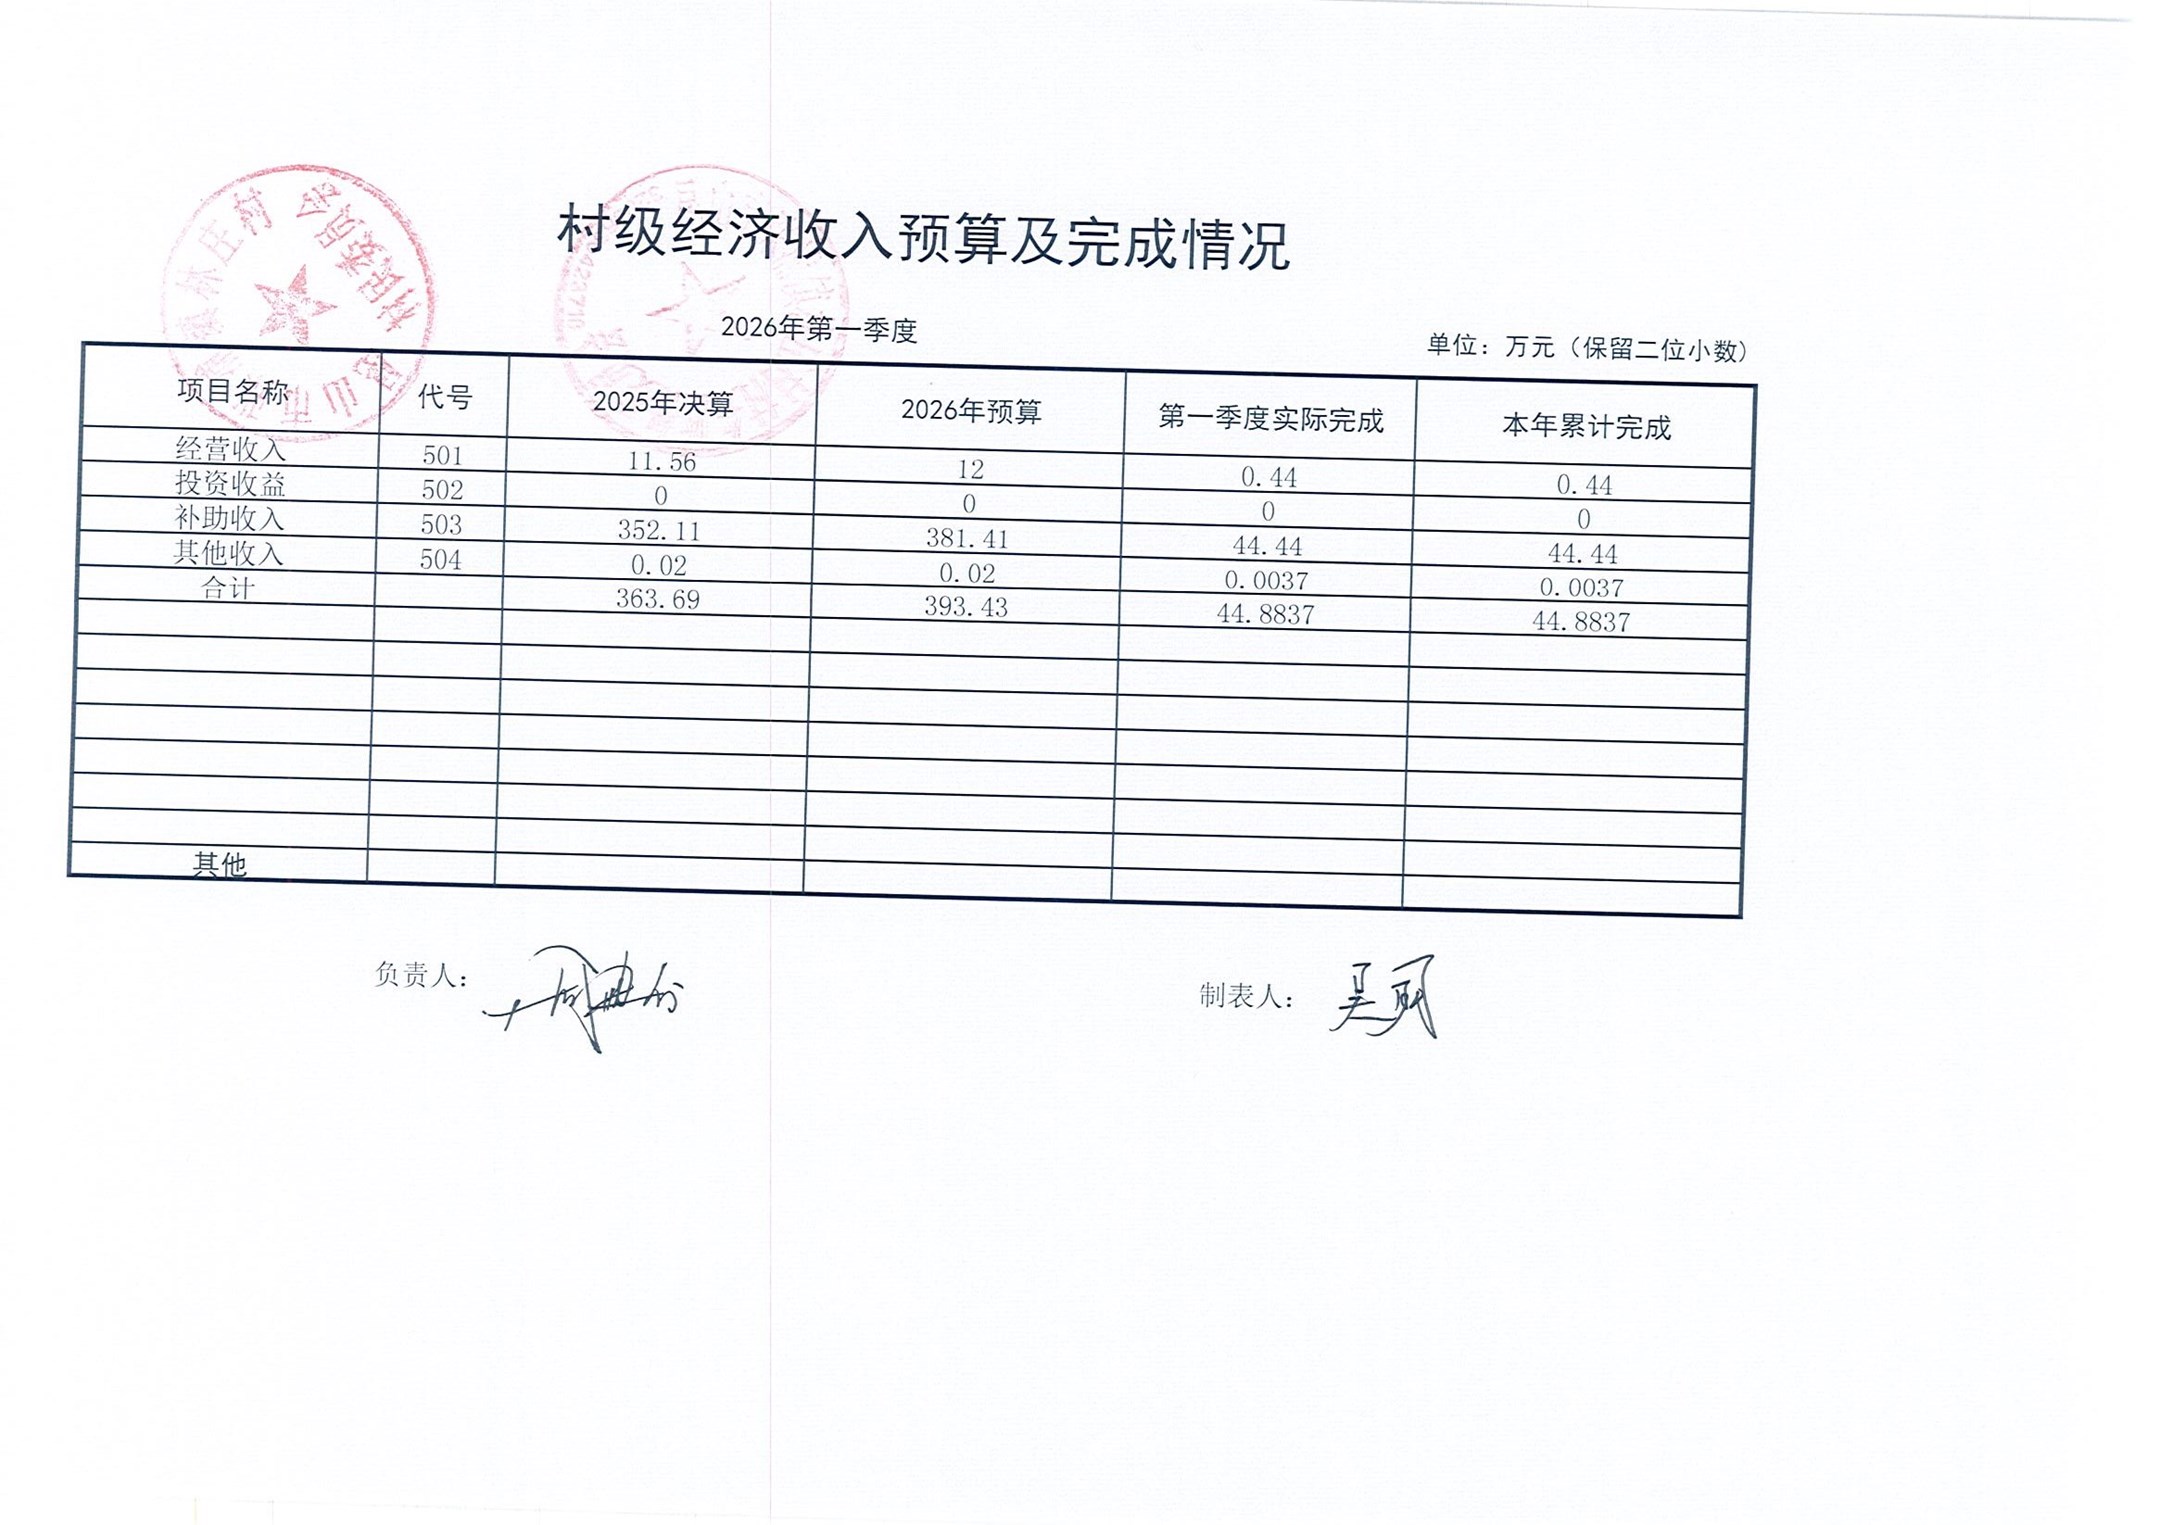 村级经济收入预算及完成情况
2026年第一季度
单位：万元（保留二位小数）
项目名称 代号 2025年决算 2026年预算 第一季度实际完成 本年累计完成
经营收入 501 11.56 12 0.44 0.44
投资收益 502 0 0 0 0
补助收入 503 352.11 381.41 44.44 44.44
其他收入 504 0.02 0.02 0.0037 0.0037
合计 363.69 393.43 44.8837 44.8837
其他
负责人：
制表人：
林庄村
村民委员会